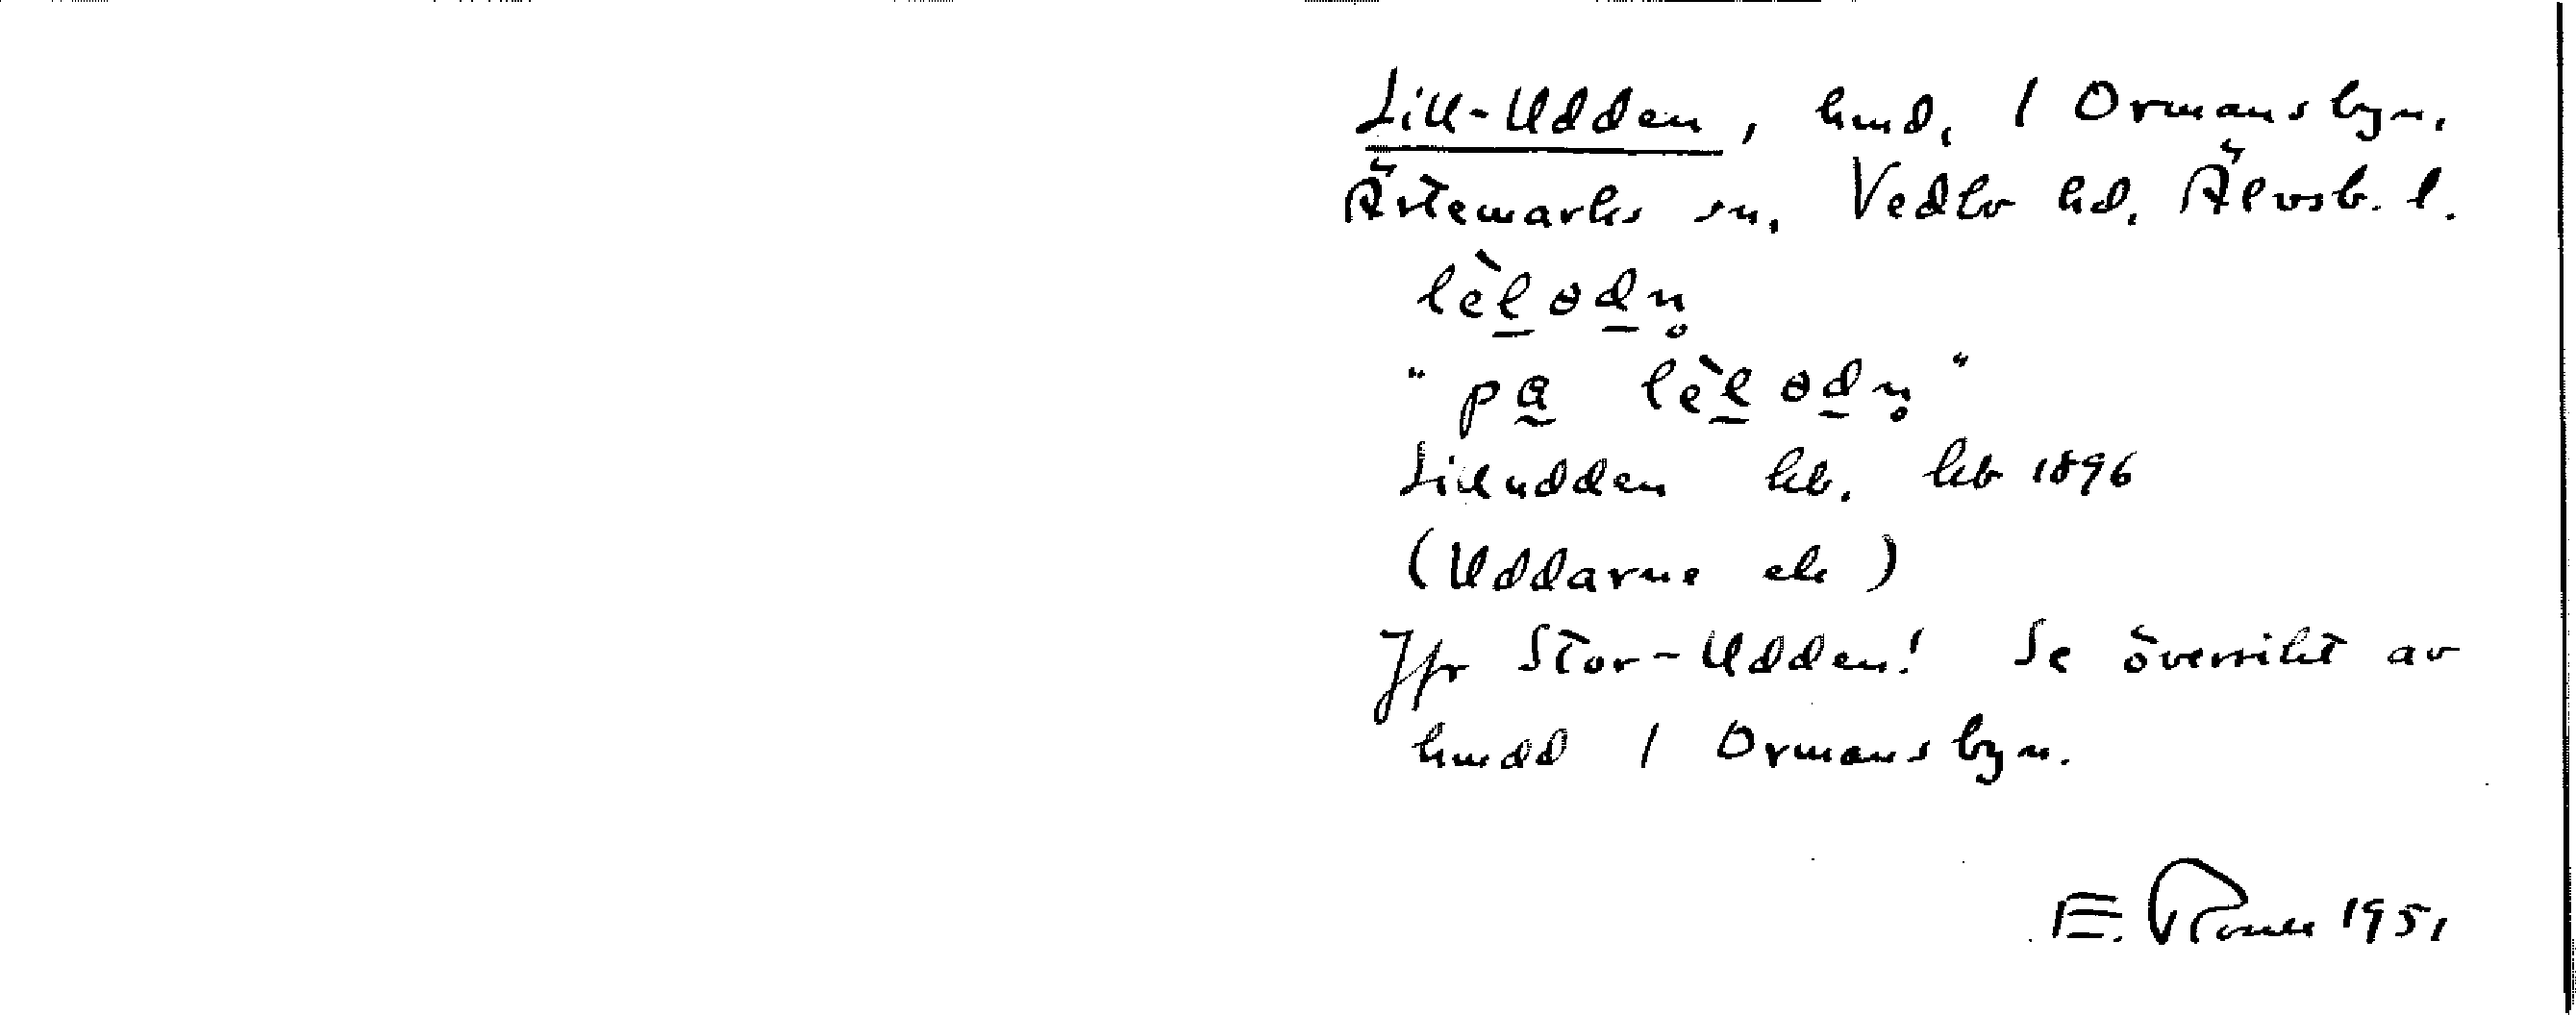 Lill-Udden, hmd, 1 Ormansbyn.
Ärtemarks sn, Vedbo hd, Älvsb. l.
lèlodn̥
"pa lèlodn̥"
Lilludden hb. kb 1896
(Uddarne ek)
Jfr Stor-Udden! Se översikt av
hmdd 1 Ormansbyn.
E. 1951